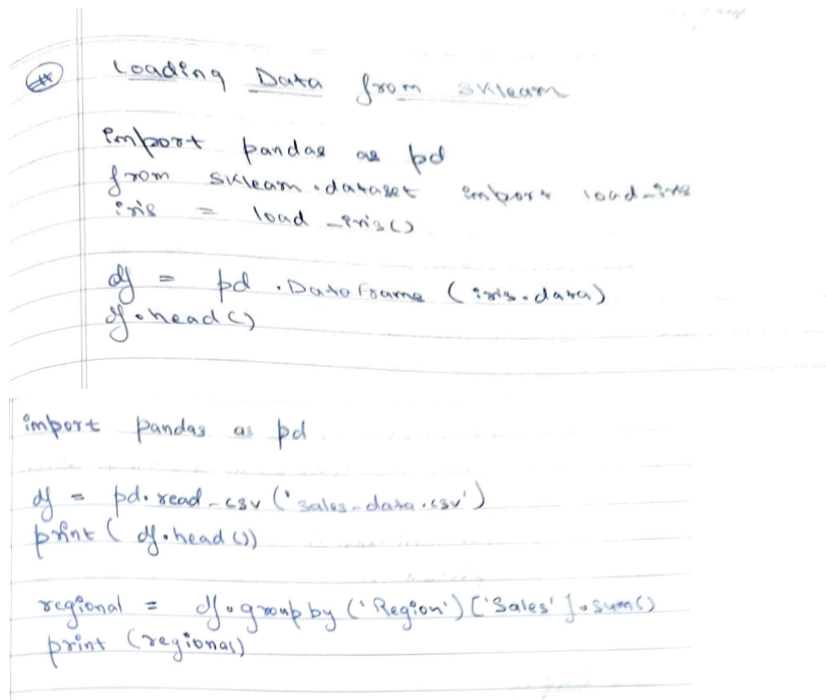 # Loading Data from sklearn
import pandas as pd
from sklearn.dataset import load_iris
iris = load_iris()
df = pd.DataFrame (iris.data)
df.head()
import pandas as pd
df = pd.read_csv ('sales_data.csv')
print ( df.head())
regional = df.groupby ('Region') ['Sales'].sum()
print (regional)